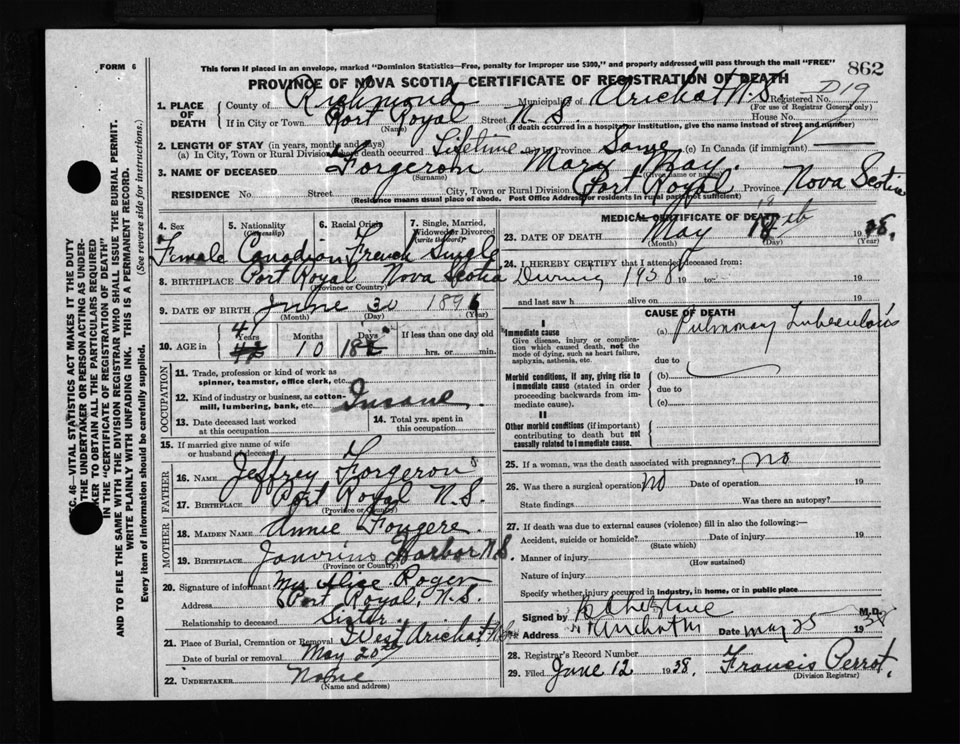 FORM 6
This form if placed in an envelope, marked "Dominion Statistics—Free, penalty for improper use $300," and properly addressed will pass through the mail "FREE"
862
PROVINCE OF NOVA SCOTIA, CERTIFICATE OF REGISTRATION OF DEATH
D19
1. PLACE OF DEATH County of Richmond Municipality of Arichat N.S. Registered No.
(For use of Registrar General only)
If in City or Town Port Royal Street N.S. House No.
(Name) (If death occurred in a hospital or institution, give the name instead of street and number)
2. LENGTH OF STAY (in years, months and days)
(a) In City, Town or Rural Division where death occurred Lifetime Province Same (c) In Canada (if immigrant)
3. NAME OF DECEASED Forgeron Mary May
(Surname) (Given name or names)
RESIDENCE No. Street City, Town or Rural Division Port Royal Province Nova Scotia
(Residence means usual place of abode. Post Office Address for residents in rural parts not sufficient)
4. Sex 5. Nationality (Citizenship) 6. Racial Origin 7. Single, Married, Widowed or Divorced (write the word)
Female Canadian French Single
8. BIRTHPLACE Port Royal Nova Scotia
(Province or Country)
9. DATE OF BIRTH June 30 1896
(Month) (Day) (Year)
10. AGE in 41 Years 10 Months 18 Days If less than one day old
hrs. or min.
OCCUPATION
11. Trade, profession or kind of work as spinner, teamster, office clerk, etc.
12. Kind of industry or business, as cotton-mill, lumbering, bank, etc. Insane
13. Date deceased last worked at this occupation
14. Total yrs. spent in this occupation
15. If married give name of wife or husband of deceased
FATHER
16. NAME Jeffrey Forgeron
17. BIRTHPLACE Port Royal N.S.
(Province or Country)
MOTHER
18. MAIDEN NAME Annie Fougere
19. BIRTHPLACE Janvrins Harbor N.S.
(Province or Country)
20. Signature of informant Mrs Alice Roger
Address Port Royal, N.S.
Relationship to deceased Sister
21. Place of Burial, Cremation or Removal West Arichat
Date of burial or removal May 20th
22. UNDERTAKER None
(Name and address)
MEDICAL CERTIFICATE OF DEATH
23. DATE OF DEATH May 18 1938.
(Month) (Day) (Year)
24. I HEREBY CERTIFY that I attended deceased from:
During 1938 19 to: 19
and last saw h alive on 19
CAUSE OF DEATH
I
Immediate cause
Give disease, injury or complication which caused death, not the mode of dying, such as heart failure, asphyxia, asthenia, etc.
(a) Pulmonary Tuberculosis
due to
Morbid conditions, if any, giving rise to immediate cause (stated in order proceeding backwards from immediate cause).
(b)
due to
(c)
II
Other morbid conditions (if important) contributing to death but not causally related to immediate cause.
25. If a woman, was the death associated with pregnancy? no
26. Was there a surgical operation? no Date of operation 19
State findings Was there an autopsy?
27. If death was due to external causes (violence) fill in also the following:—
Accident, suicide or homicide? Date of injury 19
(State which)
Manner of injury
(How sustained)
Nature of injury
Specify whether injury occurred in industry, in home, or in public place
Signed by M.D.
Address Arichat Date May 25 1938
28. Registrar's Record Number
29. Filed June 12 1938. Francis Perrot.
(Division Registrar)
SEC. 46—VITAL STATISTICS ACT MAKES IT THE DUTY
OF THE UNDERTAKER OR PERSON ACTING AS UNDERTAKER TO OBTAIN ALL THE PARTICULARS REQUIRED
IN THE "CERTIFICATE OF REGISTRATION OF DEATH"
AND TO FILE THE SAME WITH THE DIVISION REGISTRAR WHO SHALL ISSUE THE BURIAL PERMIT.
WRITE PLAINLY WITH UNFADING INK. THIS IS A PERMANENT RECORD.
Every item of information should be carefully supplied. (See reverse side for instructions.)